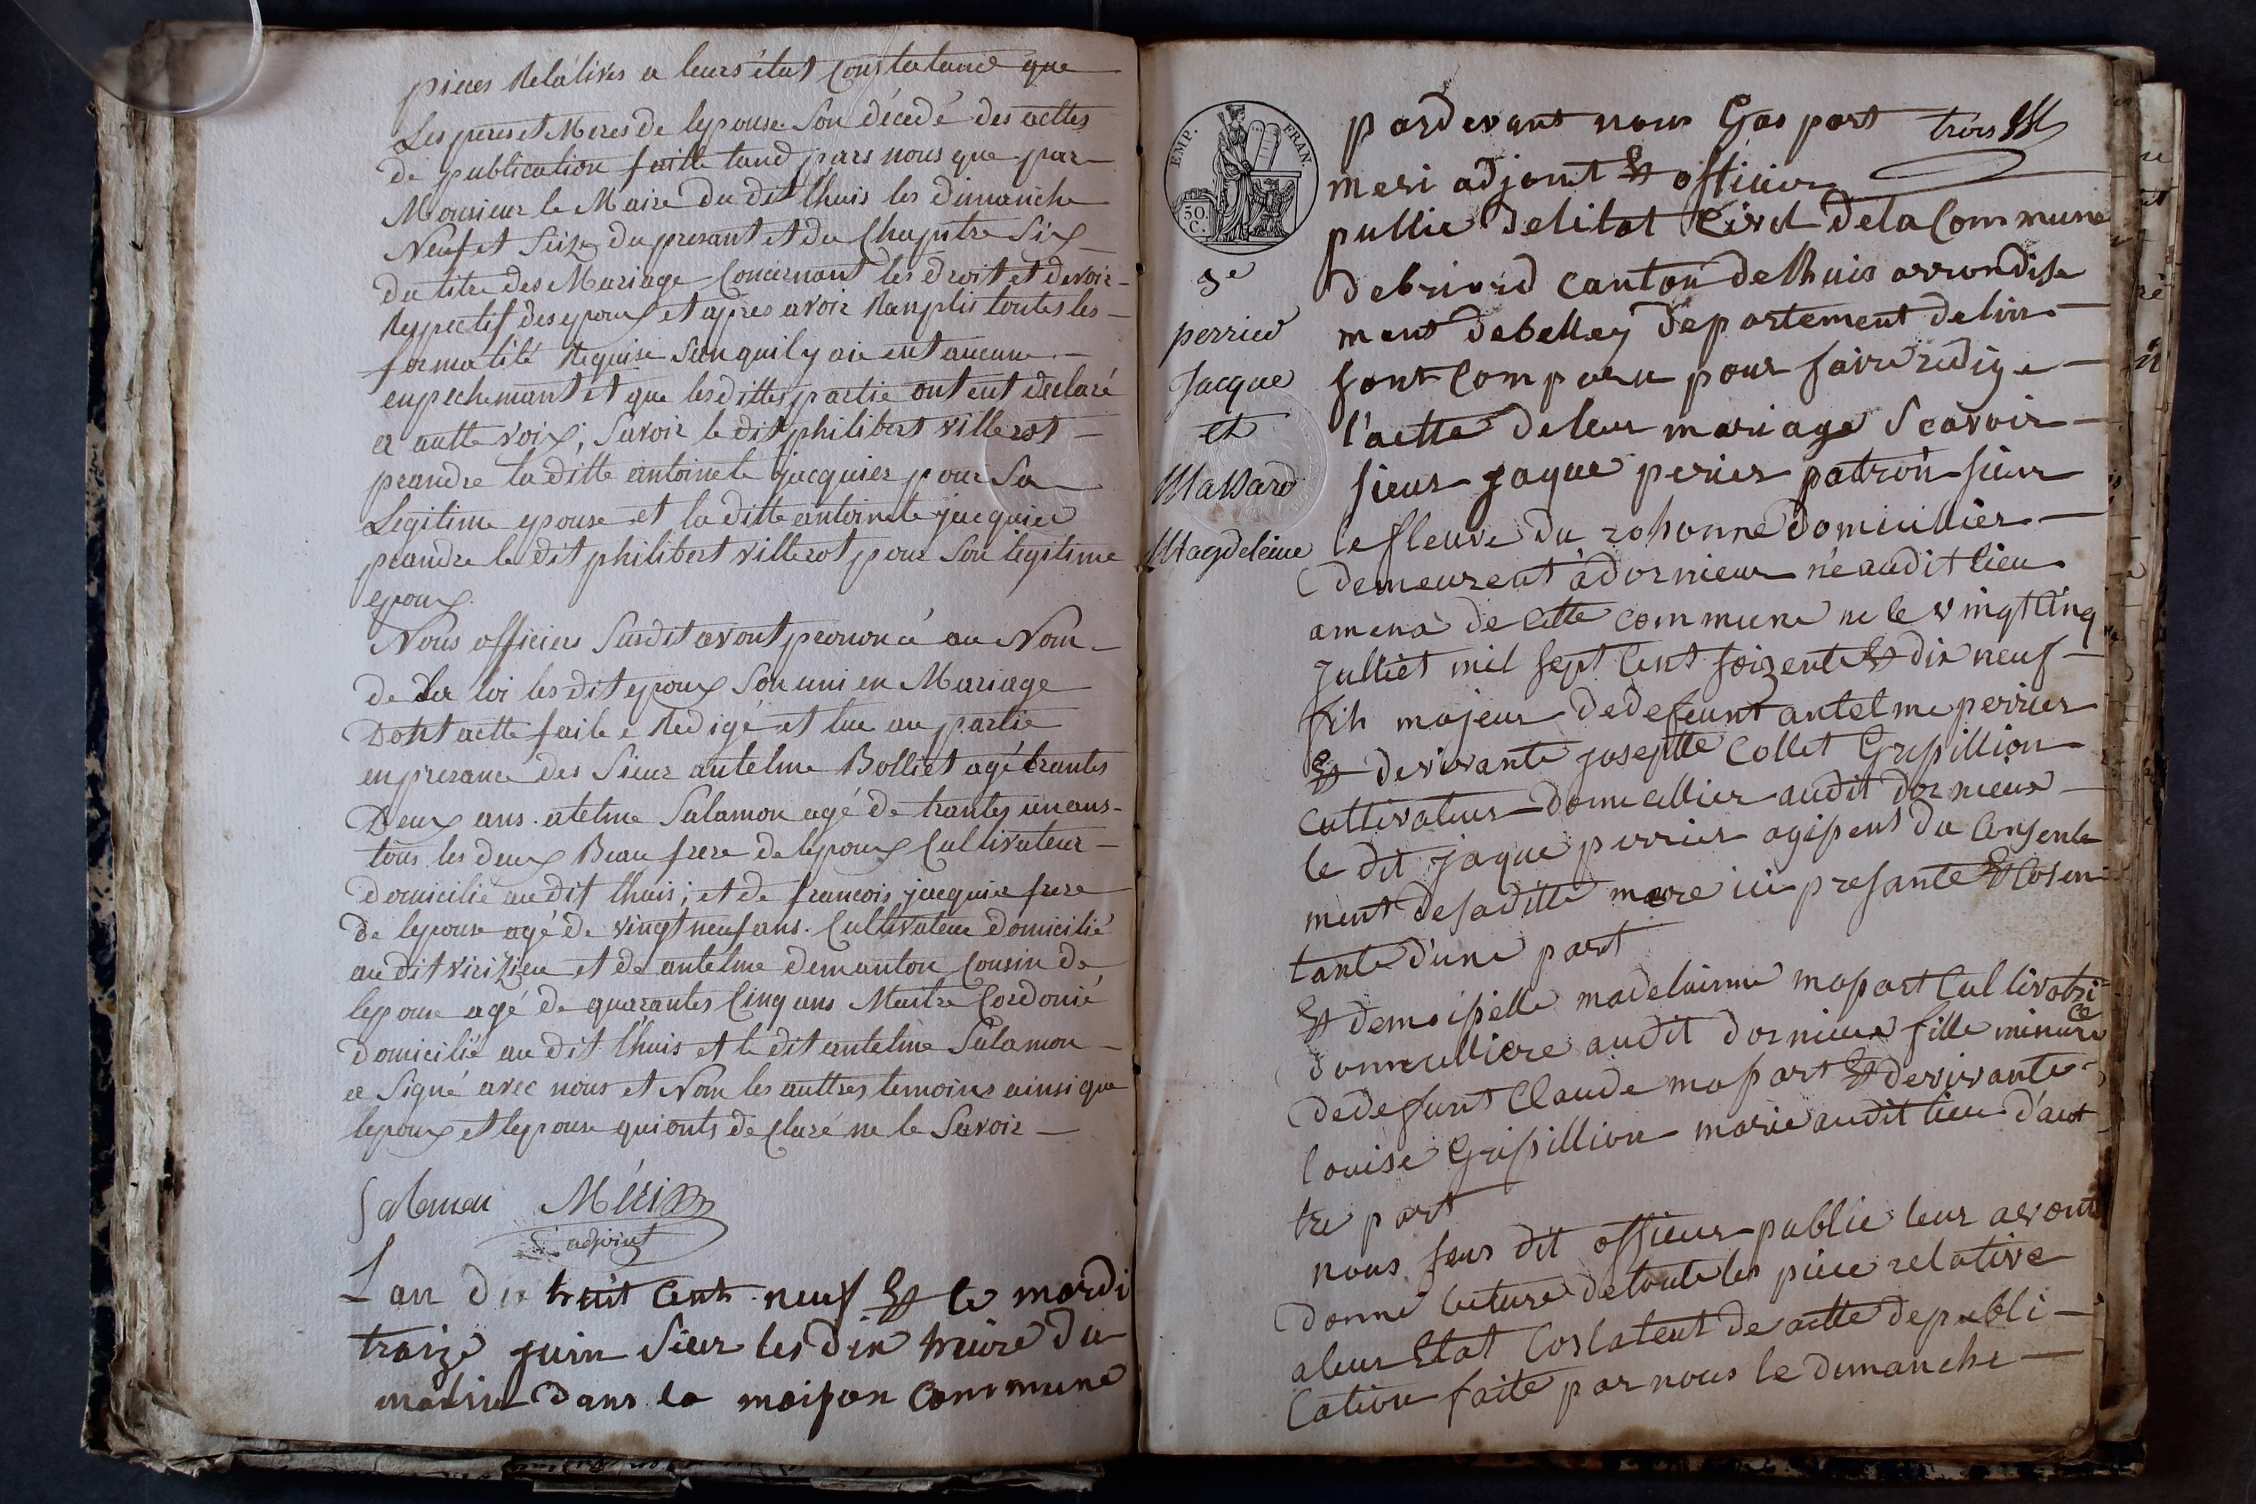 pieces Relatives a leurs état Constatance que
Les peres et Meres de lepouse Son décedé des acttes
de publication faitte tand pars nous que par
Monsieur le Maire du dit lhuis les dimanche
Neuf et Seize du presant et du Chapitre Six
du titre des Mariage Concernant les droit et devoir
Respectif des epoux et apres avoir Ranplis touttes les
formalité Requise San quil y aie ent aucune
enpechemant et que lesdittes partie ont ent declaré
a autte voix, Savoir le dit philibert villerot
prandre la ditte antoinete jacquier pour Sa
Legitime epouse et la ditte antoinete jacquier
prandre le dit philibert villerot pour Son legitime
epoux
Nous officiers Susdit avont prononcé au Nom
de La loi les dit epoux Son uni en Mariage
Dont actte faite Redigé et lue au partie
en presance des Sieur antelme Bolliet agé trantes
Deux ans. atelme Salamon agé de trantes un ans
tous les deux Beau frere de lepoux Cultivateur
domicilié au dit lhuis; et de francois jacquier frere
de lepouse agé de vingt neuf ans. Cultivateur domicilié
au dit vizieu et de antelme demanton Cousin de
lepouse agé de quarantes Cinq ans Maitre Cordonié
domicilié au dit lhuis et le dit antelme Salamon
a Signé avec nous et Nom les auttres temoins ainsi que
lepoux et lepouse qui onts declaré ne le Savoir
Salamon Méri
adjoint
Lan di huit Cent neuf & le mardi
traize juin Sieur les dix heure du
matin dans la maison Commune
EMP. FRAN.
50. C.
3e
perrier
Jacque
et
Massard
Magdeleine
trois
pardevant nous Gaspart
meri adjoint & officier
pullic de létat Civil de la Commune
de briord canton de lhuis arrondise
ment de belley departement de lin
sont Comparu pour faire redige
l'actte de leur mariage Scavoir
sieur jaque perier patron sieur
le fleuve du rohonne domicillier
demeurent a dornieux né audit lieu
amena de cette commune ne le vingt cinq
julliet mil sept Cent soizente & dix neuf
fih majeur de defeunt antelme perrier
& de vivante joseptte Collet Grissillion
Cultivateur domicillier audit dornieux
le dit jaque perrier agissent du Consente
ment de saditte maere ici presante & Cosen
tante d'une part
& demoiselle madelainne massart Cultivatri
ce
domicilliere audit dornieux fille minure
de defunt Claude massart & de vivante
louise Grissillion marie audit lieu d'aut
tre part
nous sous dit officier public leur avont
donné lecture de toute les piece relative
aleur Etat Costatent de actte de publi
Cation faite par nous le dimanche